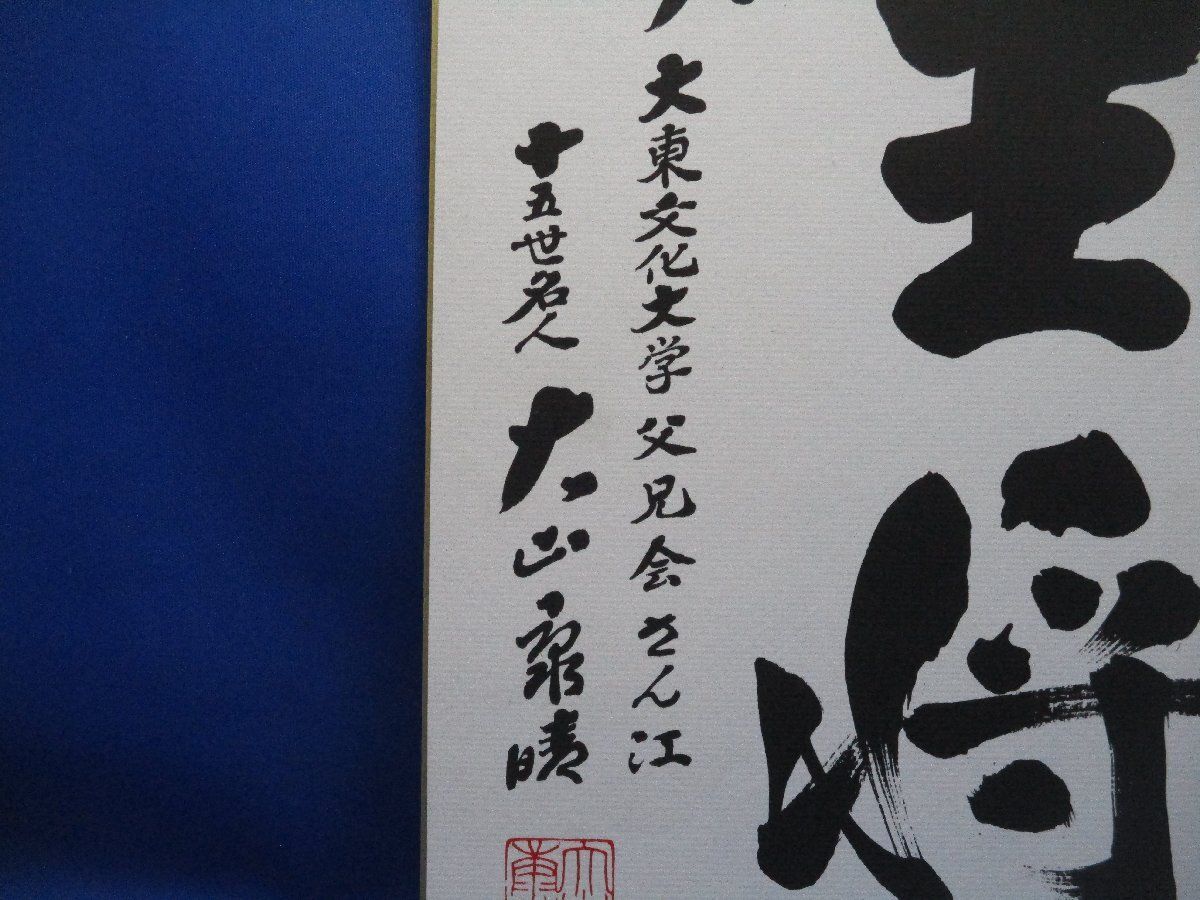 王将
大東文化大学父兄会さん江
十五世名人 大山康晴